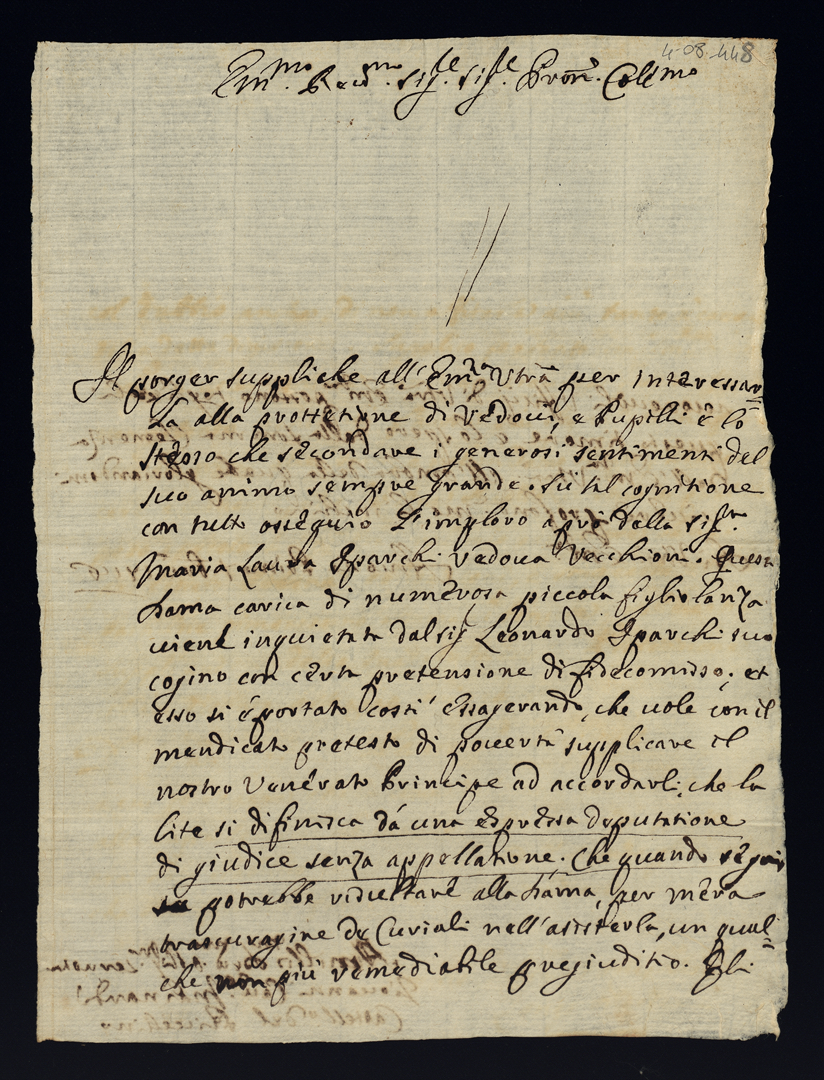 4-08-448
Em.mo Reu.mo Sig.re Sig.re Pron. Coll.mo
Il porger suppliche all' Em.a Vtra per interessar=
La alla prottetione di Vedoui, e Pupilli è lo
stesso che secondare i generosi sentimenti del
suo animo sempre grande. Sù tal cognitione
con tutto ossequio L'imploro a prò della Sig.ra
Maria Laura Sparchi Vedoua Vecchioni. Questa
Dama carica di numerosa piccola figliolanza
uiene inquietata dal Sig Leonardo Sparchi suo
cogino con certa pretensione di fidecomisso; et
esso si è portato costì essagerando, che uole con il
mendicato pretesto di pouertà supplicare il
nostro Venerato Principe ad accordarli, che la
lite si difinisca dà una espressa deputatione
di giudice senza appellatione. Che quando seguis
se potrebbe risultare alla Dama, per mera
trascuragine de Curiali nell'assisterla, un qual=
che non più remediabile pregiuditio.